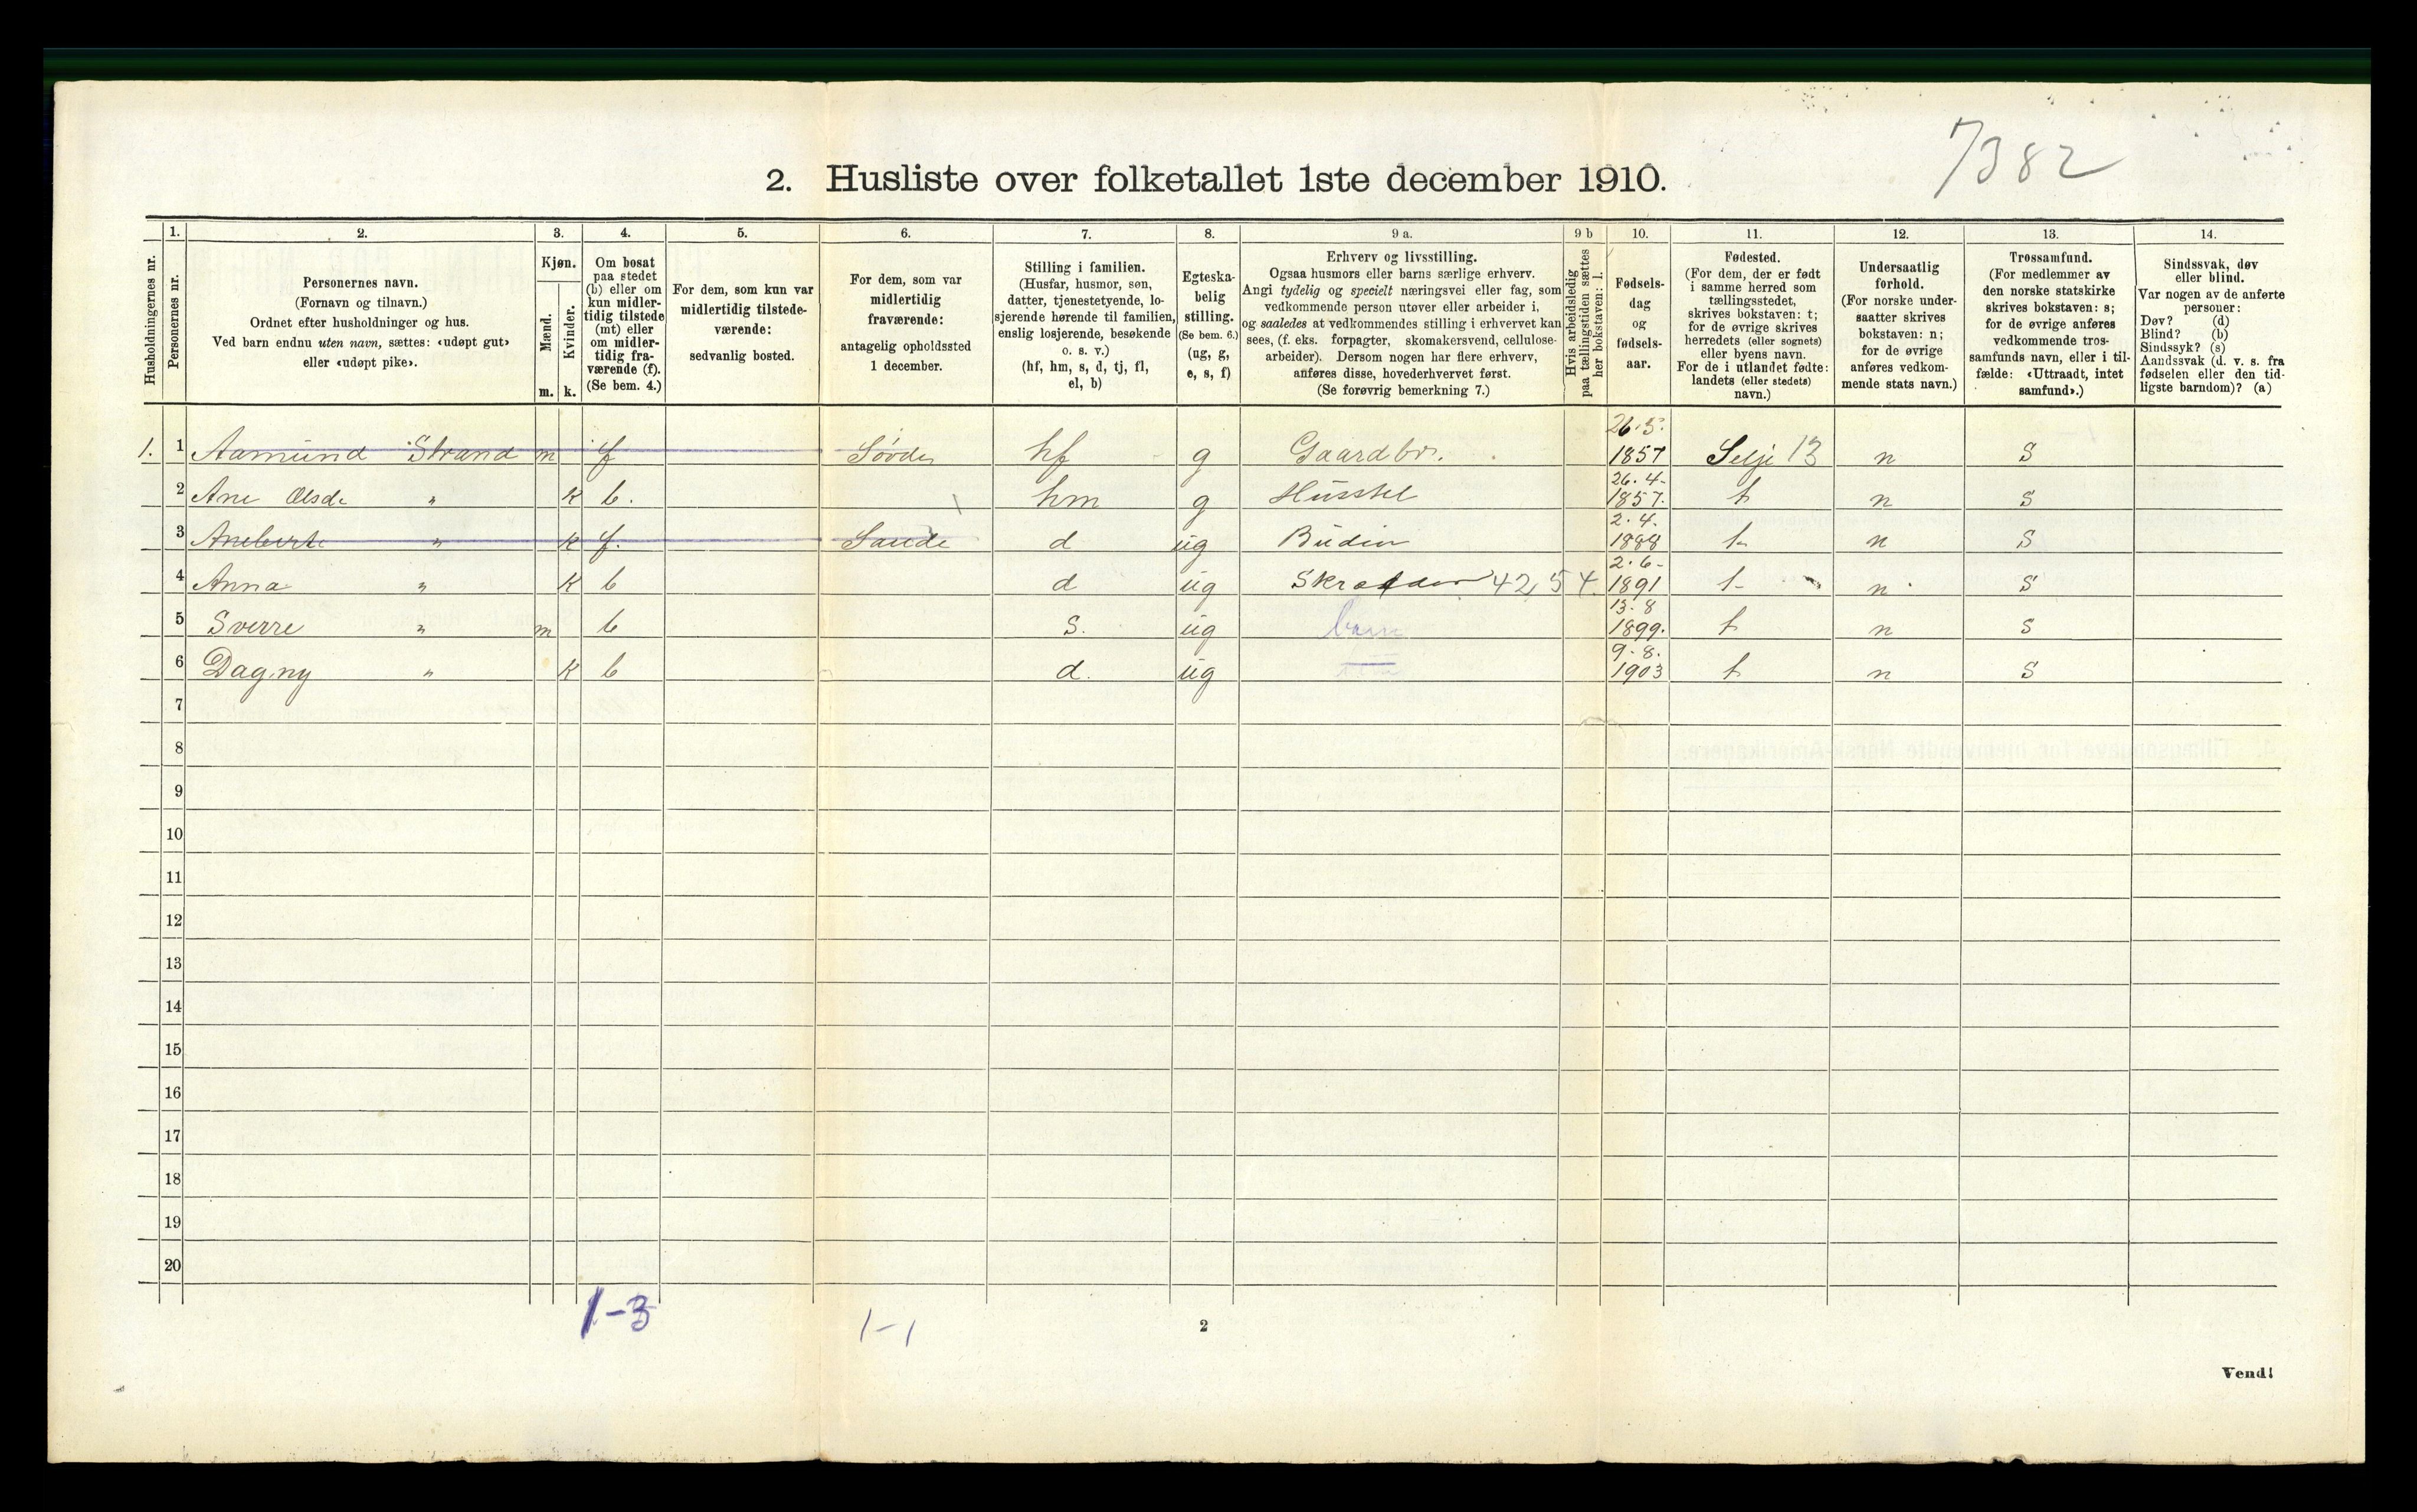 7382
2. Husliste over folketallet 1ste december 1910.
Husholdningernes nr.
1.
Personernes nr.
2.
Personernes navn.
(Fornavn og tilnavn.)
Ordnet efter husholdninger og hus.
Ved barn endnu uten navn, sættes: «udøpt gut»
eller «udøpt pike».
3.
Kjøn.
Mænd.
m.
Kvinder.
k.
4.
Om bosat
paa stedet
(b) eller om
kun midler-
tidig tilstede
(mt) eller
om midler-
tidig fra-
værende (f).
(Se bem. 4.)
5.
For dem, som kun var
midlertidig tilstede-
værende:
sedvanlig bosted.
6.
For dem, som var
midlertidig
fraværende:
antagelig opholdssted
1 december.
7.
Stilling i familien.
(Husfar, husmor, søn,
datter, tjenestetyende, lo-
sjerende hørende til familien,
enslig losjerende, besøkende
o. s. v.)
(hf, hm, s, d, tj, fl,
el, b)
8.
Egteska-
belig
stilling.
(Se bem. 6.)
(ug, g,
e, s, f)
9 a.
Erhverv og livsstilling.
Ogsaa husmors eller barns særlige erhverv.
Angi tydelig og specielt næringsvei eller fag, som
vedkommende person utøver eller arbeider i,
og saaledes at vedkommendes stilling i erhvervet kan
sees, (f. eks. forpagter, skomakersvend, cellulose-
arbeider). Dersom nogen har flere erhverv,
anføres disse, hovederhvervet først.
(Se forøvrig bemerkning 7.)
9 b
Hvis arbeidsledig
paa tællingstiden sættes
her bokstaven: l.
10.
Fødsels-
dag
og
fødsels-
aar.
11.
Fødested.
(For dem, der er født
i samme herred som
tællingsstedet,
skrives bokstaven: t;
for de øvrige skrives
herredets (eller sognets)
eller byens navn.
For de i utlandet fødte:
landets (eller stedets)
navn.)
12.
Undersaatlig
forhold.
(For norske under-
saatter skrives
bokstaven: n;
for de øvrige
anføres vedkom-
mende stats navn.)
13.
Trossamfund.
(For medlemmer av
den norske statskirke
skrives bokstaven: s;
for de øvrige anføres
vedkommende tros-
samfunds navn, eller i til-
fælde: «Uttraadt, intet
samfund».)
14.
Sindssvak, døv
eller blind.
Var nogen av de anførte
personer:
Døv? (d)
Blind? (b)
Sindssyk? (s)
Aandssvak (d. v. s. fra
fødselen eller den tid-
ligste barndom)? (a)
1. 1 Aamund Strand m f Søvde hf g Gaardbr. 26.5. 1857 Selje 13 n S
2 Ane Olsd. " k b. hm g Husstel 26.4. 1857. t n S
3 Aneberte " k f. Sande d ug Budin 2.4. 1888 t n S
4 Anna " k b d ug Skrædder 42,54. 2.6. 1891 t n S
5 Sverre " m b S. ug barn 13.8 1899. t n S
6 Dagny " k b d. ug 9.8. 1903 t n S
7
8
9
10
11
12
13
14
15
16
17
18
19
20
1-3
1-1
2
Vend!